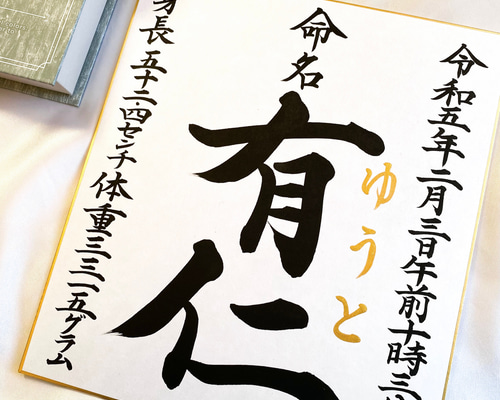 令和五年二月三日午前十時三
命名
有仁
ゆうと
身長 五十二・四センチ 体重三三一五グラム